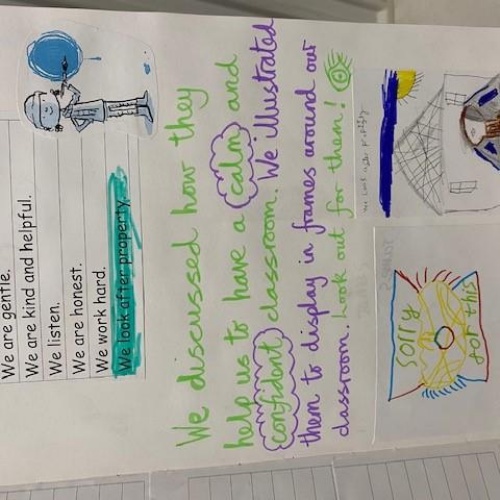 We are gentle.
We are kind and helpful.
We listen.
We are honest.
We work hard.
We look after property.
We discussed how they
help us to have a calm and
confident classroom. We illustrated
them to display in frames around our
classroom. Look out for them!
we look after property
sorry
for this